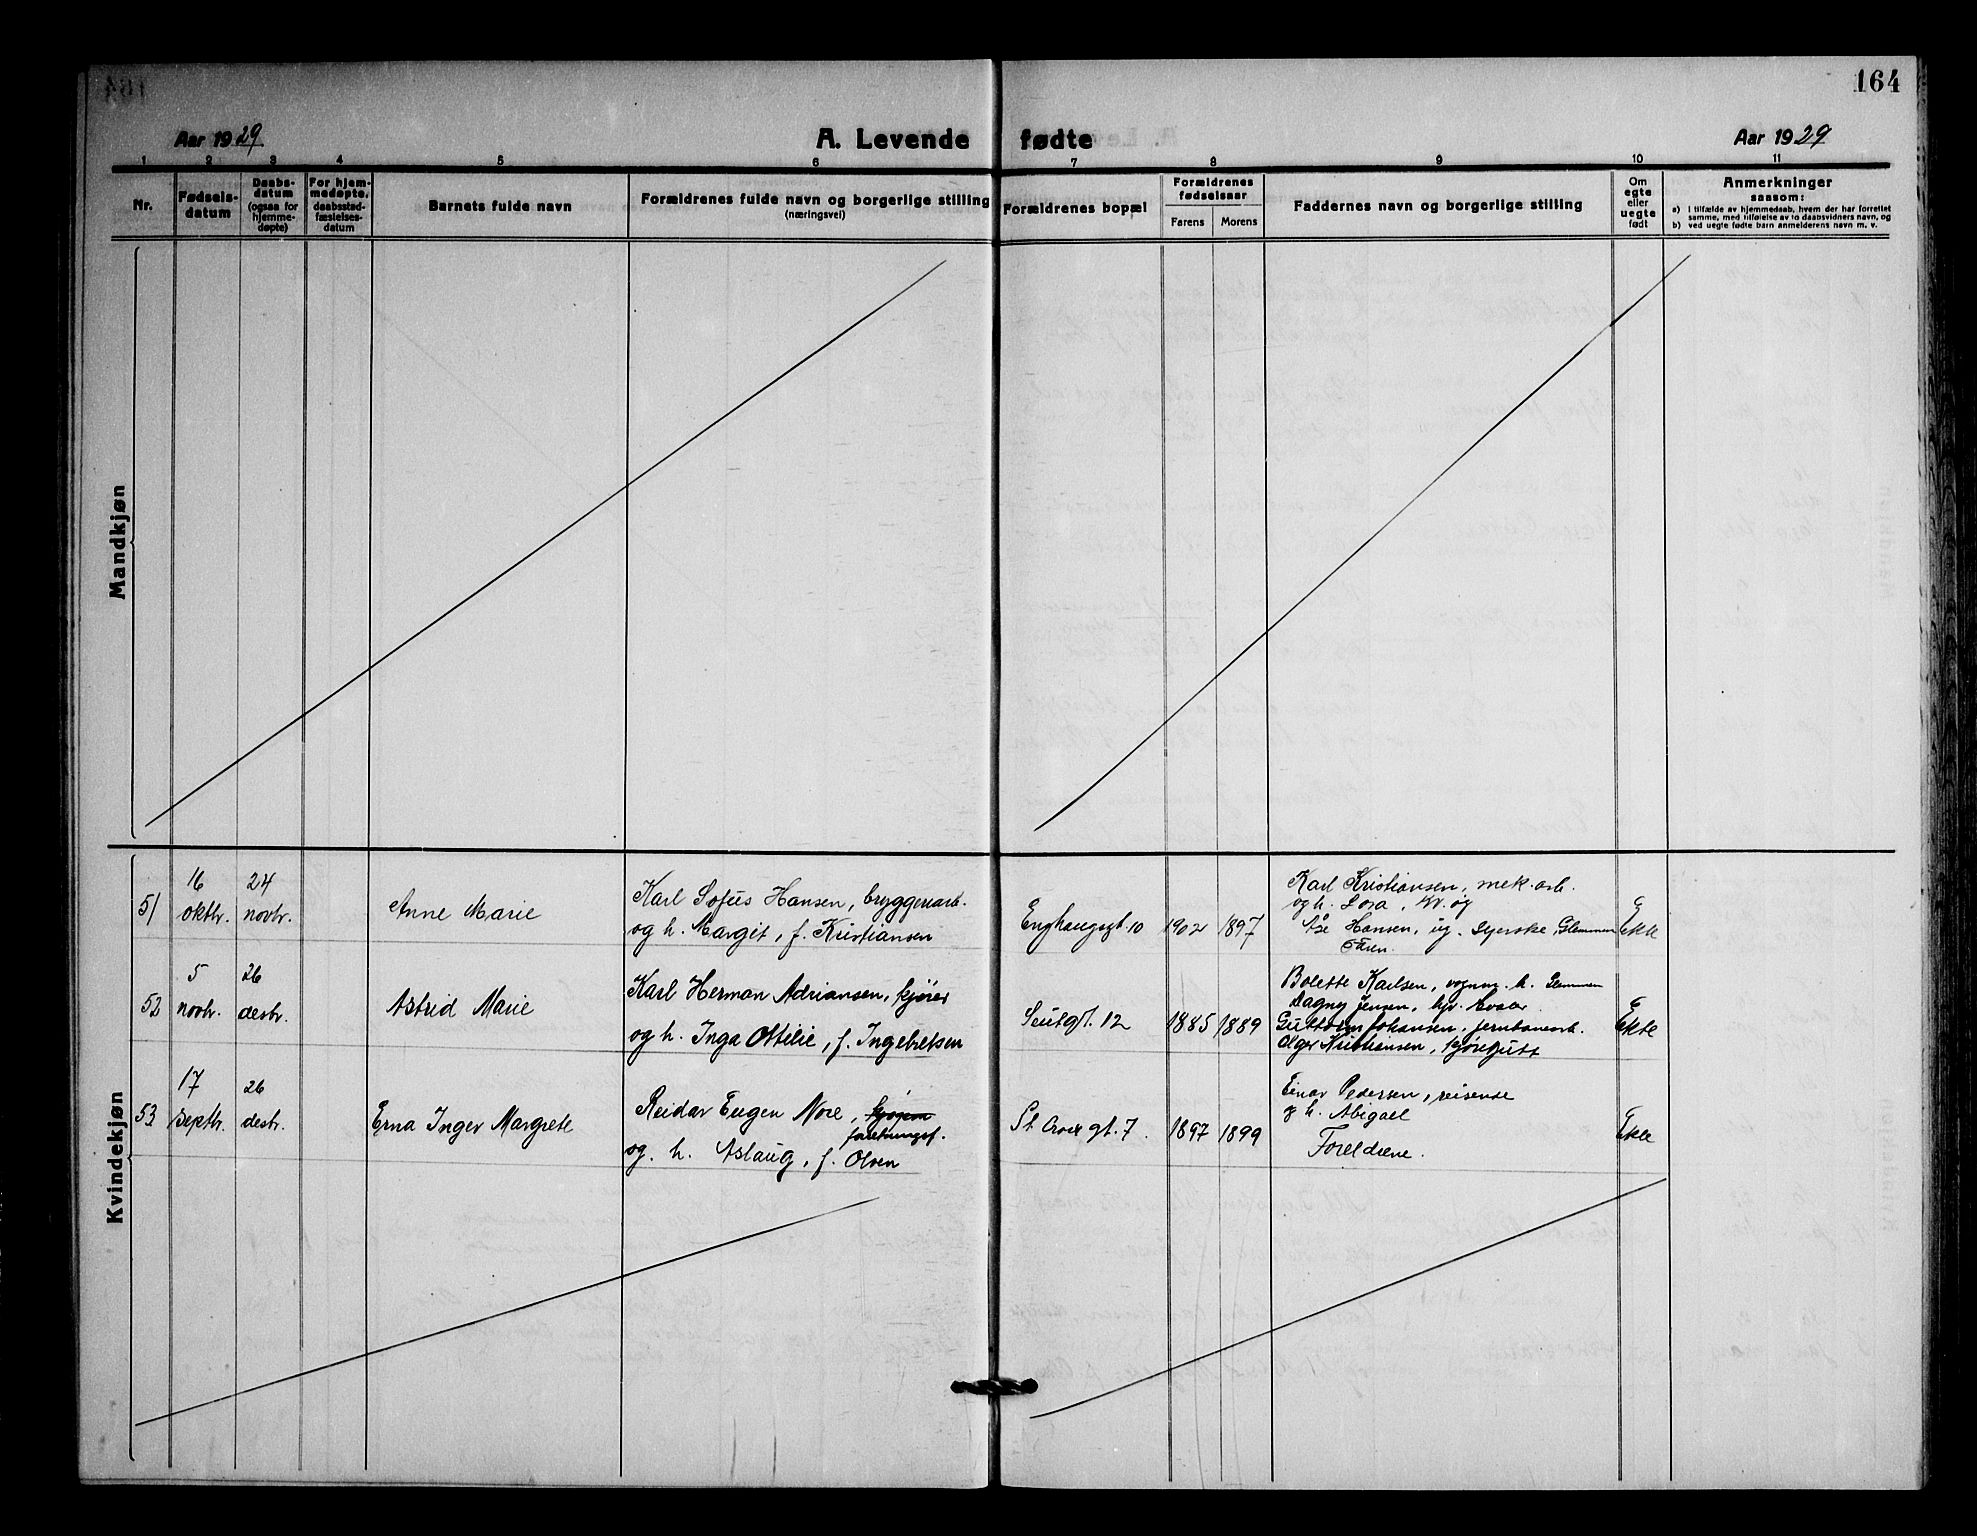 164
Aar 1929
A. Levende fødte
Aar 1929
1 2 3 4 5 6 7 8 9 10 11
Nr.
Fødsels-
datum
Daabs-
datum
(ogsaa for
hjemme-
døpte)
For hjem-
medøpte,
daabsstad-
fæstelses-
datum
Barnets fulde navn
Forældrenes fulde navn og borgerlige stilling
(næringsvei)
Forældrenes bopæl
Forældrenes
fødselsaar
Farens Morens
Faddernes navn og borgerlige stilling
Om
egte
eller
uegte
født
Anmerkninger
saasom:
a) I tilfælde av hjemmedaab, hvem der har forrettet
samme, med tilføielse av to daabsvidners navn, og
b) ved uegte fødte barn anmelderens navn m. v.
Mandkjøn
Kvindekjøn
51
16
oktbr.
24
novbr.
Anne Marie
Karl Sofus Hansen, bryggeriarb.
og h. Margit, f. Kristiansen
Enghaugsgt. 10
1902 1897
Karl Kristiansen, mek. arb.
og h. Lora,
Hansen, ug. Syerske, Glemmen
Faren.
E
Ekte
52
5
novbr.
26
desbr.
Astrid Marie
Karl Herman Adriansen, kjører
og h. Inga Ottilie, f. Ingebretsen
Seutgt. 12
1885 1889
Bolette Karlsen, vognm. h. Glemmen
Dagny Jensen, Hvaler
Guttorm Johansen, jernbanearb.
Olger Kristiansen, kjøregutt
E
Ekte
53
17
septbr.
26
desbr.
Erna Inger Margrete
Reidar Eugen Nore,
forretningsf.
og h. Aslaug, f. Olsen
St. Croix gt. 7.
1897 1899
Einar Pedersen, reisende
og h. Abigael
Foreldrene.
Ekte